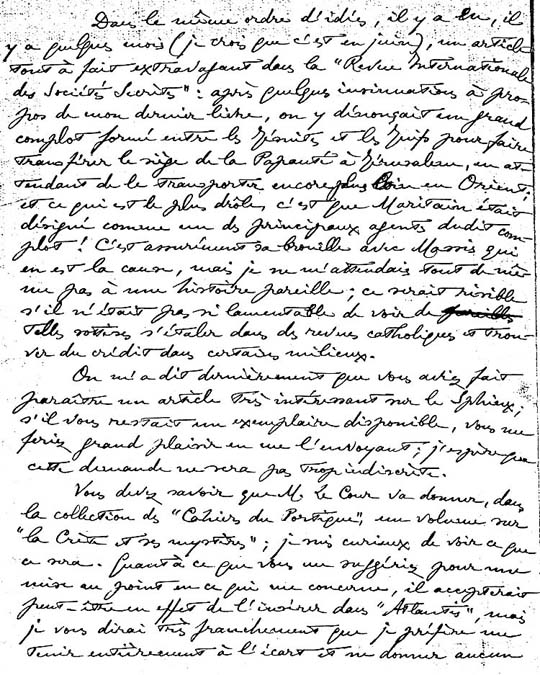 Dans le même ordre d'idées, il y a eu, il
y a quelques mois (je crois que c'est en juin), un article
tout à fait extravagant dans la "Revue Internationale
des Sociétés Secrètes" : après quelques insinuations à pro-
pos de mon dernier livre, on y dénonçait un grand
complot formé entre les Jésuites et les Juifs pour faire
transférer le siège de la Papauté à Jérusalem, en at-
tendant de le transporter encore plus loin en Orient ;
et ce qui est le plus drôle, c'est que Maritain était
désigné comme un des principaux agents dudit com-
plot ! C'est assurément sa brouille avec Massis qui
en est la cause, mais je ne m'attendais tout de mê-
me pas à une histoire pareille ; ce serait risible
s'il n'était pas si lamentable de voir de pareilles
telles sottises s'étaler dans des revues catholiques et trou-
ver du crédit dans certains milieux.
On m'a dit dernièrement que vous aviez fait
paraître un article très intéressant sur le Sphinx ;
s'il vous restait un exemplaire disponible, vous me
feriez grand plaisir en me l'envoyant ; j'espère que
cette demande ne sera pas trop indiscrète.
Vous devez savoir que M. Le Cour va donner, dans
la collection des "Cahiers du Portique", un volume sur
"la Crète et ses mystères" ; je suis curieux de voir ce que
ce sera. Quant à ce que vous me suggérez pour une
mise au point en ce qui me concerne, il accepterait
peut-être en effet de l'insérer dans "Atlantis", mais
je vous dirai très franchement que je préfère me
tenir entièrement à l'écart et ne donner aucun